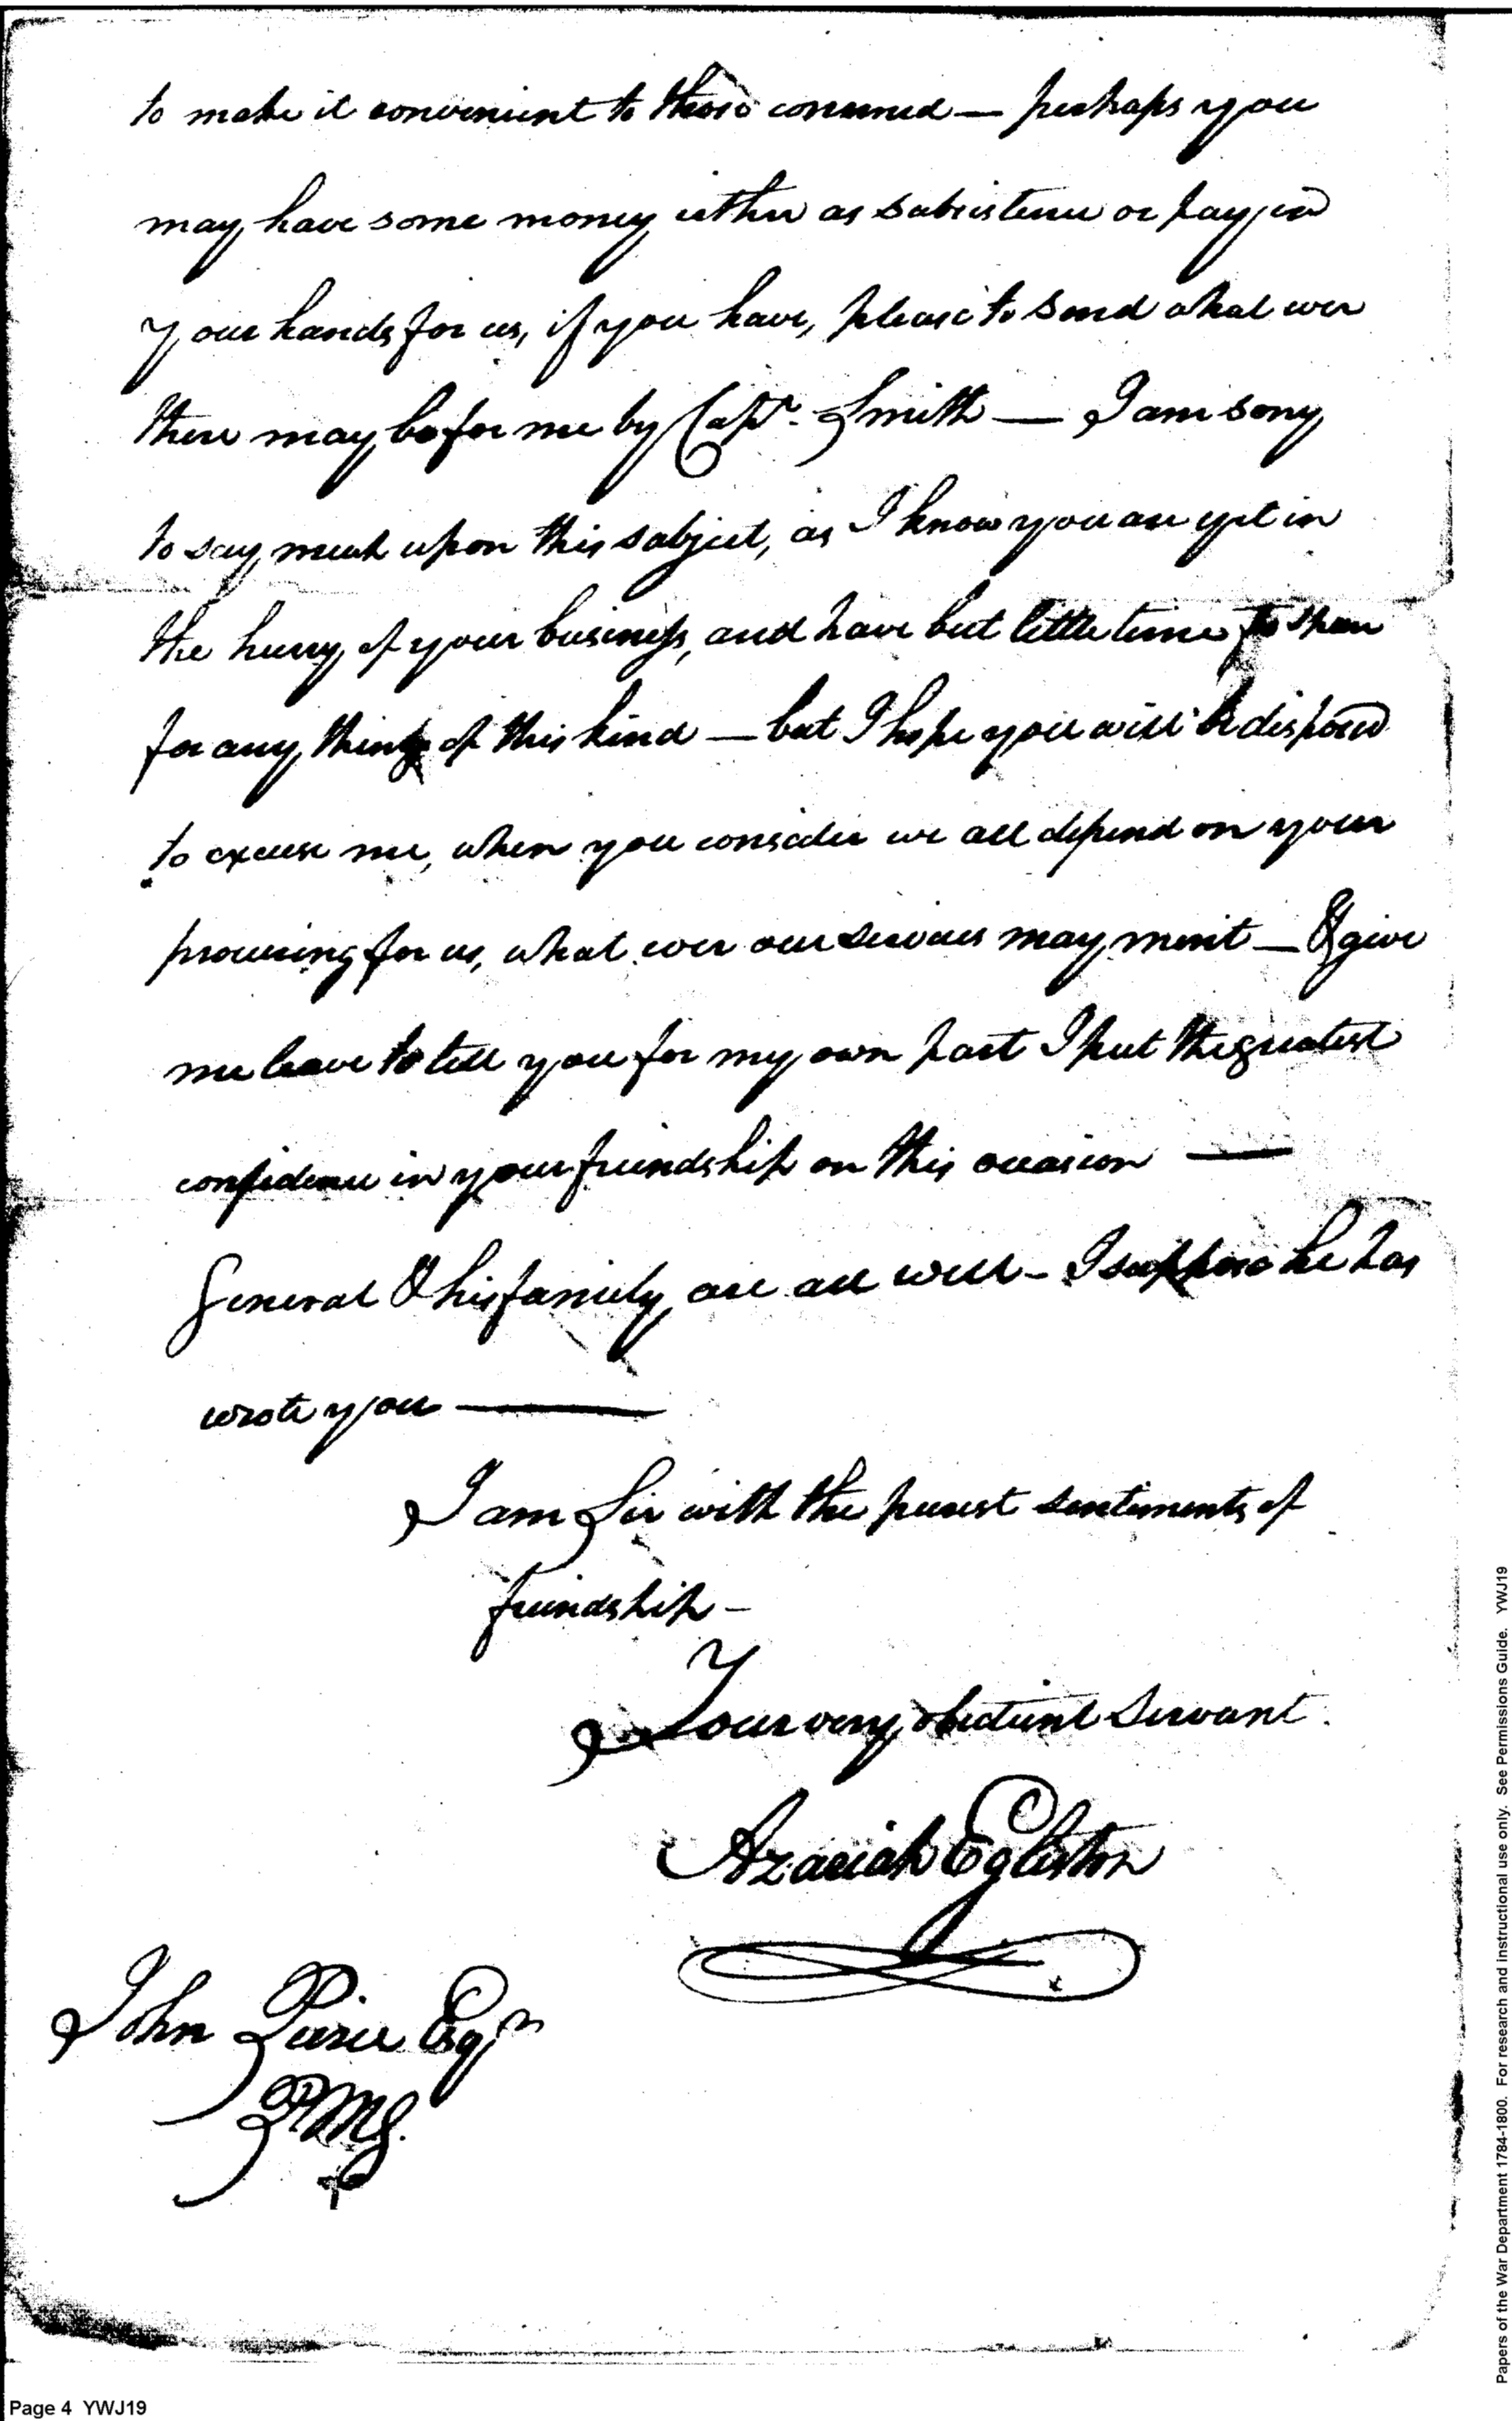 to make it convenient to those concerned — perhaps you
may have some money either as subsistence or pay, in
your hands for us, if you have, please to send what ever
there may be for me by Capt. Smith — I am sorry
to say much upon this subject, as I know you are yet in
the hurry of your business, and have but little time to spare
for any thing of this kind — but I hope you will be disposed
to excuse me, when you consider we all depend on your
procuring for us, what ever our services may merit — & give
me leave to tell you for my own part I put the greatest
confidence in your friendship on this occasion —
General & his family are all well - I suppose he has
wrote you —
I am Sir with the purest sentiments of
friendship -
Your very obedient Servant.
Azariah Egleston
John Pierce Esqr
PMG.
Page 4 YWJ19
Papers of the War Department 1784-1800. For research and instructional use only. See Permissions Guide. YWJ19